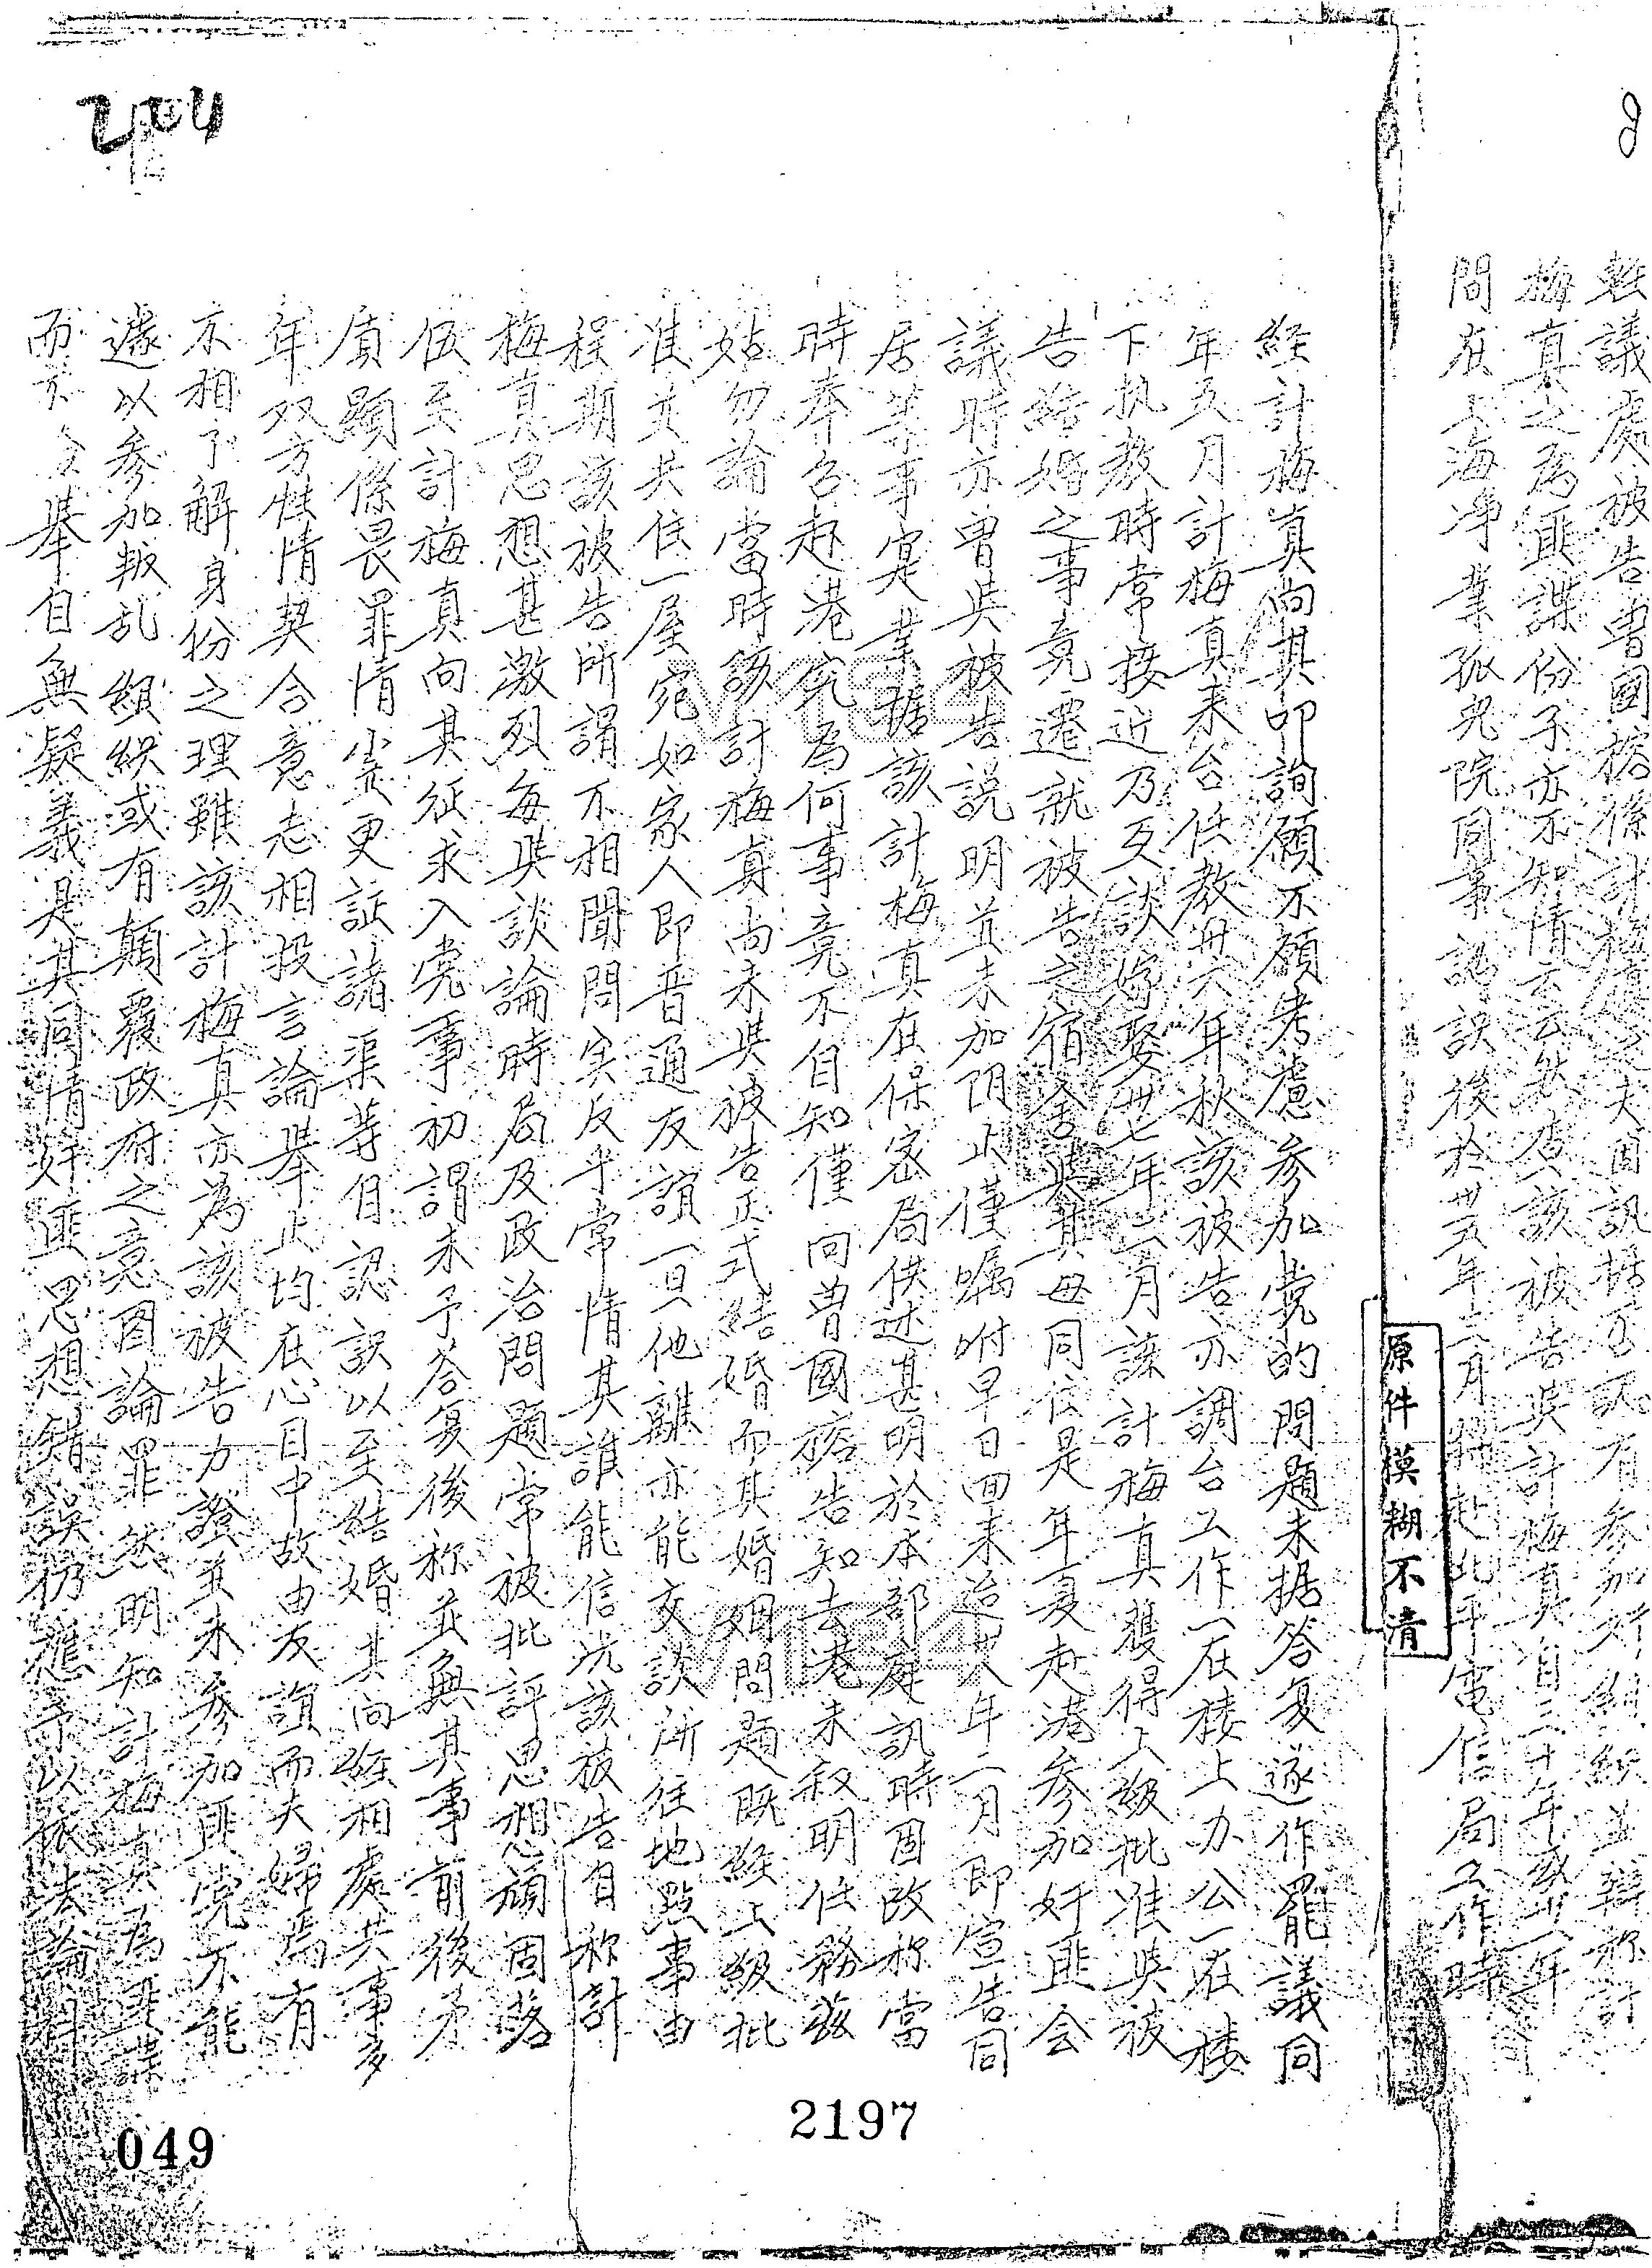 204
議處被告曾國榕係計梅真之夫固訊据否認有參加奸組織並辯称計
梅真之為匪諜份子亦不知情云云然查該被告與計梅真自三十年
問在上海淨業孤兒院同事認識後於卅五年二月將赴北平電信局工作時
原件模糊不清
経計梅真向其叩詢願不願考慮参加党的問題未据答复遂作罷議同
年五月計梅真来台任教卅六年秋該被告亦調台工作(一在楼上办公一在楼
下执教時常接近乃互談嫁娶卅七年二月該計梅真獲得上級批准與被
告結婚之事竟遷就被告之宿舍與其母同住是年夏赴港参加奸匪会
議時亦曾與被告説明並未加阻止僅嘱咐早日回来迨卅八年二月即宣告同
居等事实業据該計梅真在保密局供述甚明於本部庭訊時固改称當
時奉召赴港究為何事竟不自知僅向曾國榕告知去港未叙明任務茲
姑勿論當時該計梅真尚未與被告正式結婚而其婚姻問題既経上級批
准並共住一屋宛如家人即普通友誼一旦他離亦能交談所往地點事由
程期該被告所謂不相聞問实反乎常情其誰能信况該被告自称計
梅真思想甚激烈每與談論時局及政治問題常被批評思想頑固落
伍至計梅真向其征求入党事初謂未予答复後称並無其事前後矛
盾顯係畏罪情虚更証諸渠等自認識以至結婚其向経相處共事多
年双方性情契合意志相投言論舉止均在心目中故由友誼而夫婦焉有
不相了解身份之理雖該計梅真亦為該被告力證並未参加匪党不能
遽以参加叛乱組織或有顛覆政府之意图論罪然明知計梅真為匪諜
而不舉自無疑義是其同情奸匪思想錯誤仍應予以依法論科
2197
049